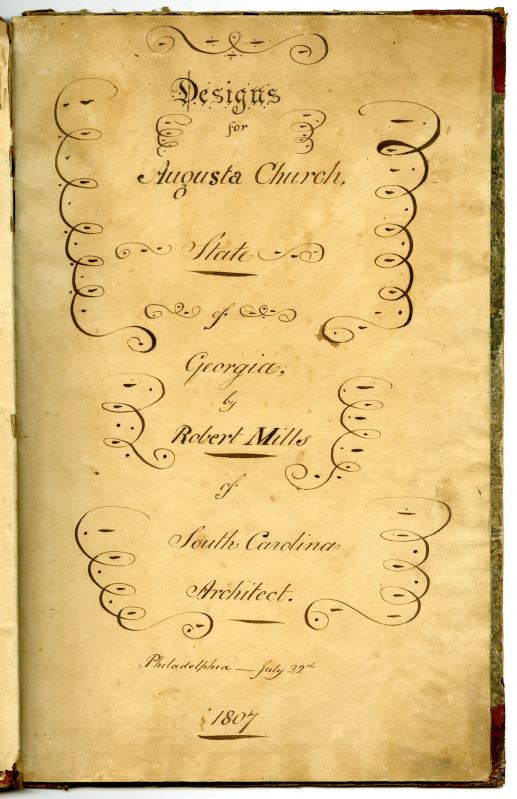 Designs
for
Augusta Church,
State
of
Georgia,
by
Robert Mills
of
South Carolina
Architect.
Philadelphia — July 22d
1807